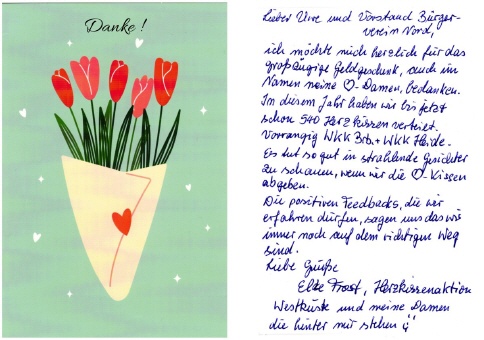 Danke!
Lieber Uwe und Vorstand Bürger-
verein Nord,
ich möchte mich herzlich für das
großzügige Geldgeschenk, auch im
Namen meine ♡-Damen, bedanken.
In diesem Jahr haben wir bis jetzt
schon 540 Herzkissen verteilt.
Vorrangig WKK Brb. + WKK Heide.
Es tut so gut in strahlende Gesichter
zu schauen, wenn wir die ♡-Kissen
abgeben.
Die positiven Feedbacks, die wir
erfahren dürfen, sagen uns das wir
immer noch auf dem richtigen Weg
sind.
Liebe Grüße
Elke Frost, Herzkissenaktion
Westküste und meine Damen
die hinter mir stehen